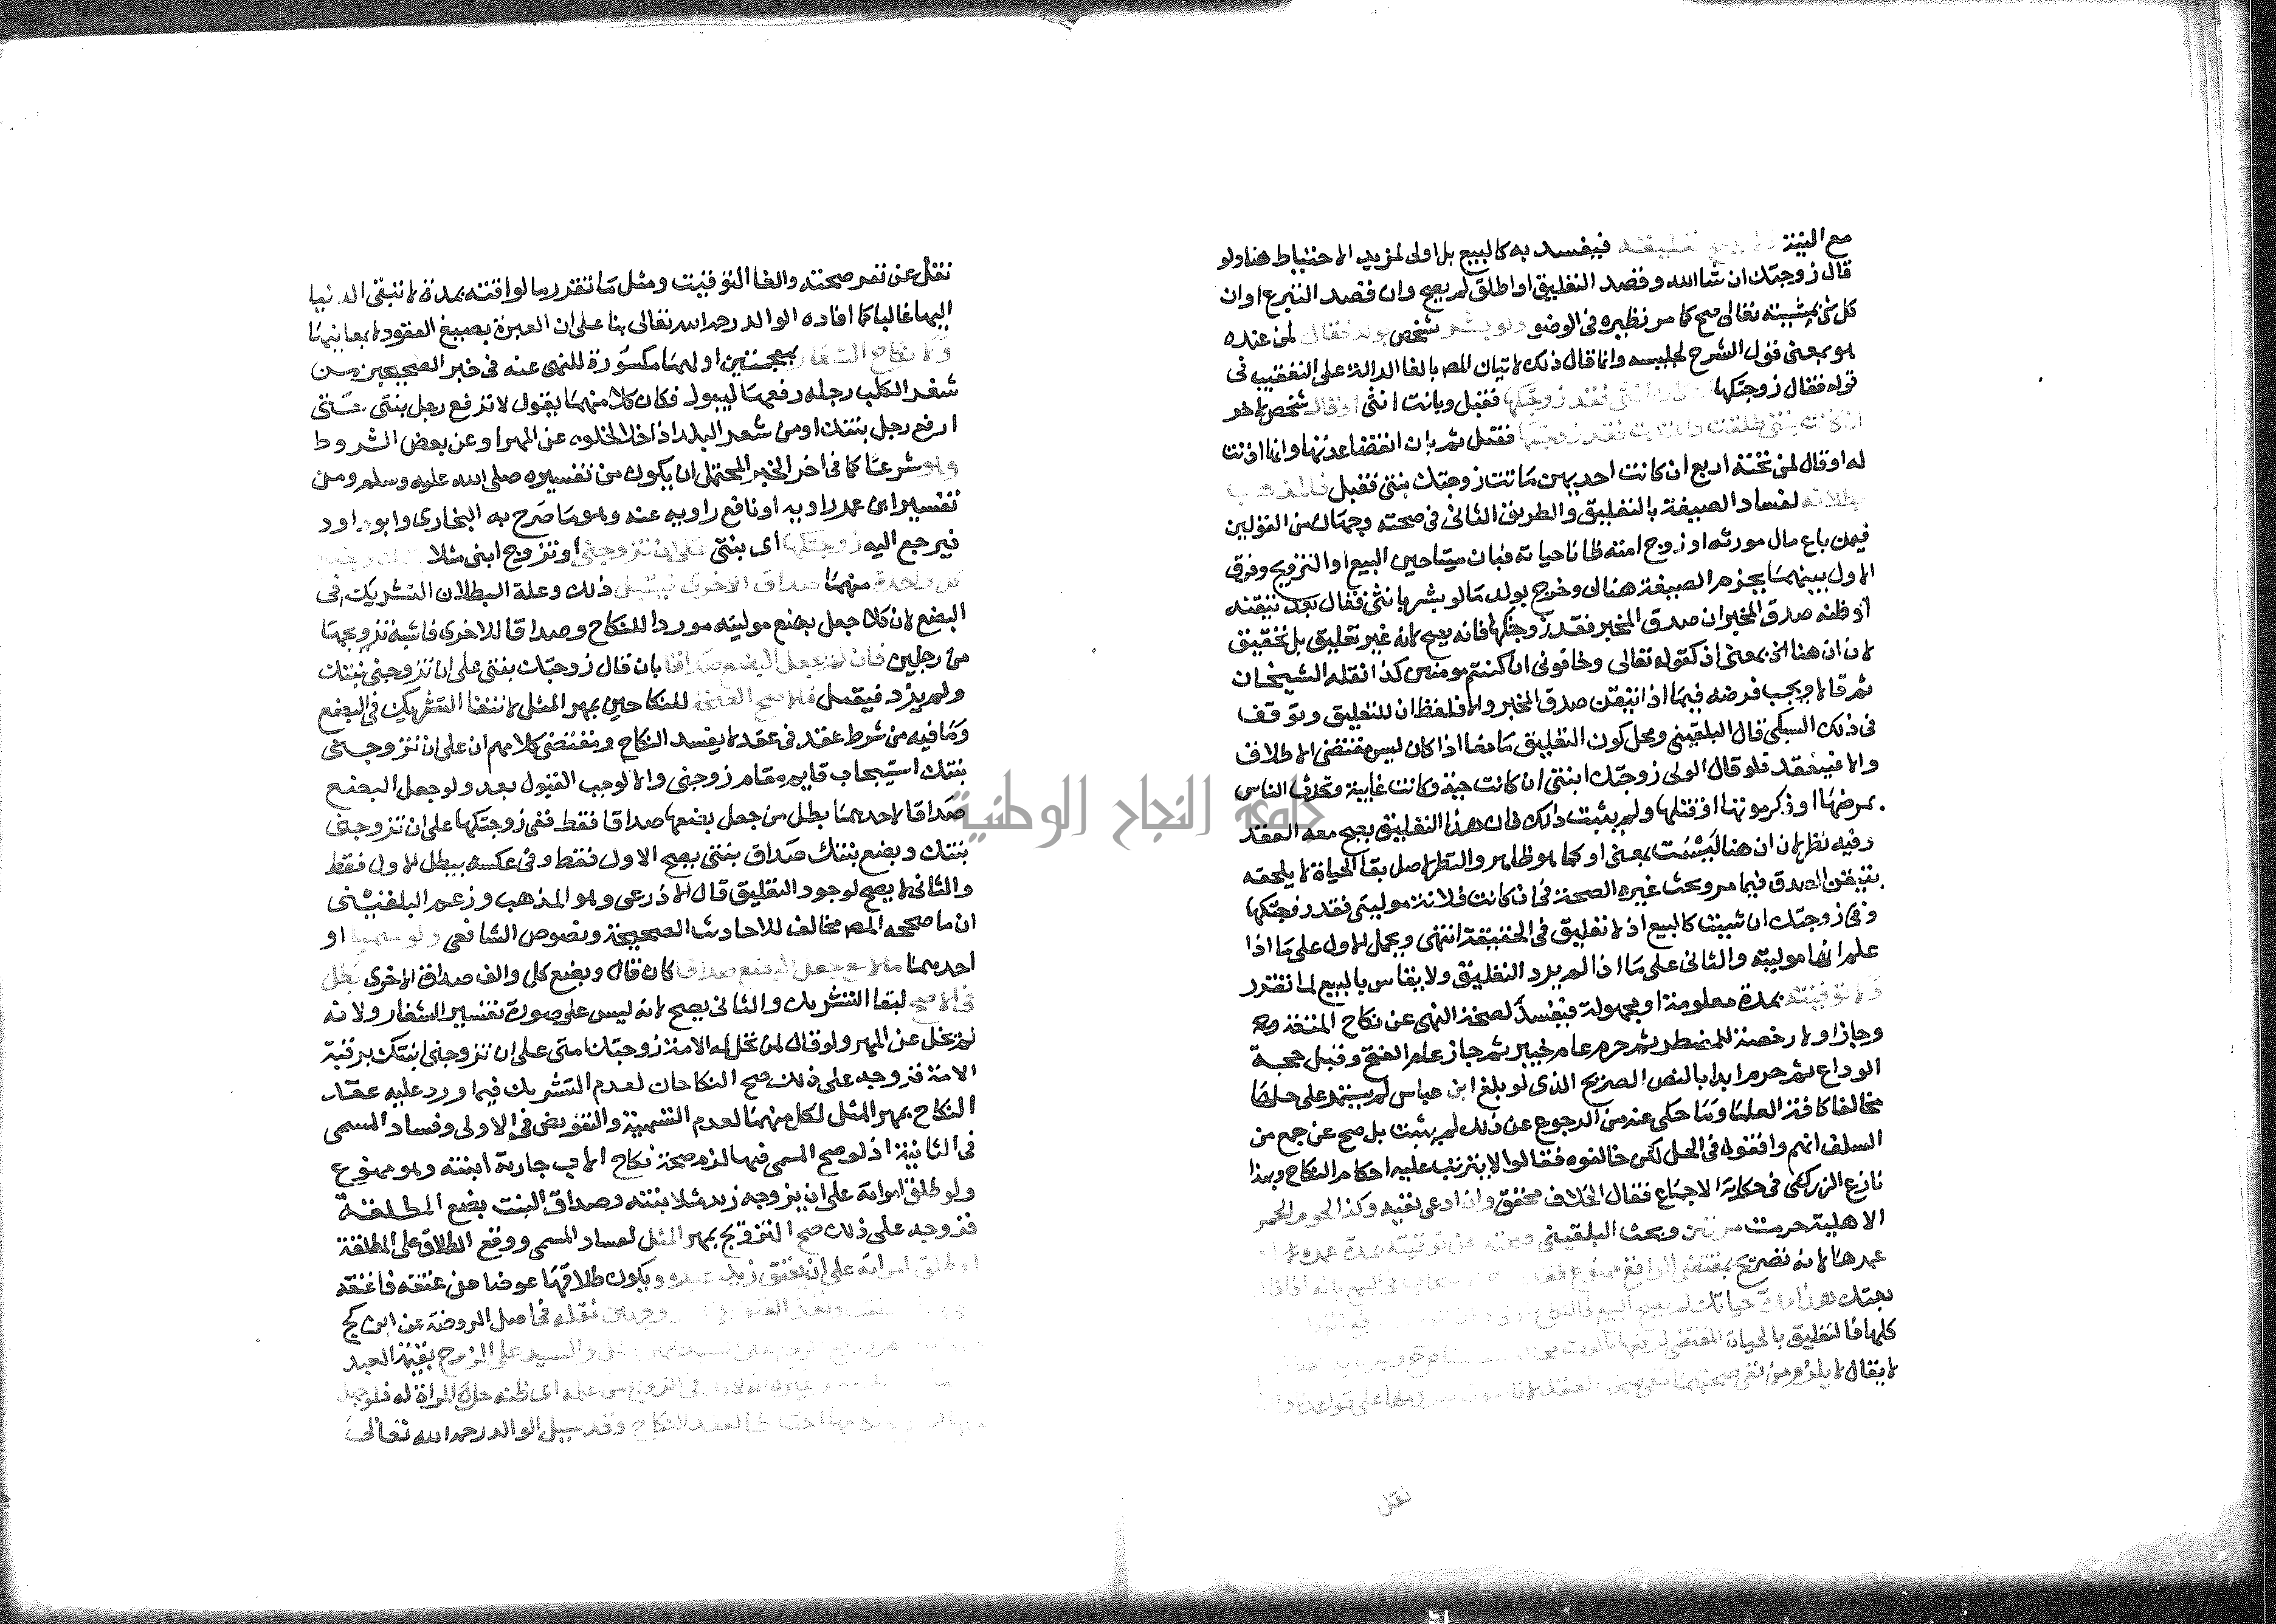 مع النية ولا يصح تعليقه فيفسد به كالبيع بل اولى لمزيد الاحتياط هنا ولو
قال زوجتك ان شا الله وقصد التعليق او اطلق لم يصح وان قصد التبرع او ان
كل شي بمشيئته تعالى صح كما مر نظيره في الوضو ولو بشر شخص بولد فقال لمن عنده
هو بمعنى قول الشرح لجليسه وانما قال ذلك لاتيان المص بالفا الدالة على التعقيب في
قوله فقال زوجتكها انثى فقد زوجتكها فقبل وبانت انثى او قال شخص لاخر
ان كانت بنتي طلقت واعتدت فقد زوجتكها فقبل ثم بان انقضا عدتها وانها اذنت
له او قال لمن تحته اربع ان كانت احديهن ماتت زوجتك بنتي فقبل فالمذهب
بطلانه لفساد الصيغة بالتعليق والطريق الثاني في صحته وجهان من القولين
فيمن باع مال مورثه او زوج امته ظانا حياته فبان ميتا حين البيع او التزويج وفرق
الاول بينهما بجزم الصيغة هناك وخرج بولد ما لو بشر بانثى فقال بعد تيقنه
او ظنه صدق المخبر ان صدق المخبر فقد زوجتكها فانه يصح لانه غير تعليق بل تحقيق
لان ان هنا اذ بمعنى اذ كقوله تعالى وخافوني ان كنتم مومنين كذا نقله الشيخان
ثم قالا ويجب فرضه فيما اذا تيقن صدق المخبر والا فلفظ ان للتعليق وتوقف
في ذلك السبكي قال البلقيني ومحل كون التعليق مانعا اذا كان ليس مقتضى الاطلاق
والا فينعقد فلو قال الولي زوجتك ابنتي ان كانت حية وكانت غايبة وتحدث الناس
بمرضها او ذكر موتها او قتلها ولم يثبت ذلك فان هذا التعليق يصح معه العقد
وفيه نظر لان ان هنا ليست بمعنى اذ كما هو ظاهر والنظر لاصل بقا الحياة لا يلحقه
بتيقن الصدق فيما مر وبحث غيره الصحة في ان كانت فلانة موليتي فقد زوجتكها
وفي زوجتك ان شيت كالبيع اذ لا تعليق في الحقيقة انتهى ويحمل الاول على ما اذا
علم انها موليته والثاني على ما اذا لم يرد التعليق ولا يقاس بالبيع لما تقرر
ولا توقيته بمدة معلومة او مجهولة فيفسد لصحة النهي عن نكاح المتعة وهو
وجاز اولا رخصة للمضطر ثم حرم عام خيبر ثم جاز عام الفتح وقبل حجة
الوداع ثم حرم ابدا بالنص الصريح الذي لو بلغ ابن عباس لم يستمر على حلها
مخالفا كافة العلما وما حكي عنه من الرجوع عن ذلك لم يثبت بل صح عن جمع من
السلف انهم وافقوه في الحل لكن خالفوه فقالوا لا يترتب عليه احكام النكاح وبهذا
نازع الزركشي في حكاية الاجماع فقال الخلاف محقق وان ادعى نفيه وكذا الحوم الحمر
الاهلية حرمت مرتين وبحث البلقيني صحته عن توقيته بمدة عمره
عمرها لانه تصريح بمقتضى الواقع ممنوع فقد في البيع بانه اذا قال
بعتك هذا مدة حياتك لم يصح البيع
كلها فالتعليق بالحياة المقتضي لرفعها بالموت
لا يقال لا يلزم من نفي صحتها
نقل
نقل عن نفر صحته والغا التوقيت ومثل ما تقرر ما لو اقته بمدة لا تبقى الدنيا
اليها غالبا كما افاده الوالد رحمه الله تعالى بنا على ان العبرة بصيغ العقود لا بمعانيها
ولا نكاح الشغار بمعجمتين اولهما مكسورة للنهي عنه في خبر الصحيحين من
شغر الكلب رجله رفعها ليبول فكان كلا منهما يقول لا ترفع رجل بنتي حتى
ارفع رجل بنتك او من شغر البلد اذا خلا لخلوه عن المهر او عن بعض الشروط
وهو شرعا كما في اخر الخبر المحتمل ان يكون من تفسيره صلى الله عليه وسلم ومن
تفسير ابن عمر راويه او نافع راويه عنه وهو ما صرح به البخاري وابو داود
فيرجع اليه زوجتكها اي بنتي على ان تزوجني او تزوج ابني مثلا بنتك وبضع
كل واحدة منهما صداق الاخرى فيقبل ذلك وعلة البطلان التشريك في
البضع لان كلا جعل بضع موليته موردا للنكاح وصداقا للاخرى فاشبه تزويجها
من رجلين فان لم يجعل البضع صداقا بان قال زوجتك بنتي على ان تزوجني بنتك
ولم يزد فيقبل فالاصح الصحة للنكاحين بمهر المثل لانتفا التشريك في البضع
وما فيه من شرط عقد في عقد لا يفسد النكاح ويقتضي كلامهم ان على ان تزوجني
بنتك استيجاب قايم مقام زوجني والا لوجب القبول بعد ولو جعل البضع
صداقا لاحدهما بطل من جعل بضعها صداقا فقط ففي زوجتكها على ان تزوجني
بنتك وبضع بنتك صداق بنتي يصح الاول فقط وفي عكسه يبطل الاول فقط
والثاني لا يصح لوجود التعليق قال الاذرعي وهو المذهب وزعم البلقيني
ان ما صححه المص مخالف للاحاديث الصحيحة ونصوص الشافعي ولو سميا او
احدهما مالا مع جعل البضع صداقا كان قال وبضع كل والف صداق الاخرى بطل
في الاصح لبقا التشريك والثاني يصح لانه ليس على صورة تفسير الشغار ولانه
لم يخل عن المهر ولو قال لمن تحل له الامة زوجتك امتي على ان تزوجني ابنتك برقبة
الامة فزوجه على ذلك صح النكاحان لعدم التشريك فيما ورد عليه عقد
النكاح بمهر المثل لكل منهما لعدم التسمية والتفويض في الاولى وفساد المسمى
في الثانية اذ لو صح المسمى فيها لزم صحة نكاح الاب جارية ابنته وهو ممنوع
ولو طلق امراته على ان يزوجه زيد مثلا بنته وصداق البنت بضع المطلقة
فزوجه على ذلك صح التزويج بمهر المثل لفساد المسمى ووقع الطلاق على المطلقة
او طلق امراته على ان يعتق زيد عبده ويكون طلاقها عوضا عن عتقه فاعتقه
ونفذ العتق في وجهين نقله في اصل الروضة عن ابن كج
والسيد على الزوج بقيمة العبد
علمه اي ظنه حل المراة له فلو جهل
احتياطا لعقد النكاح وقد سيل الوالد رحمه الله تعالى